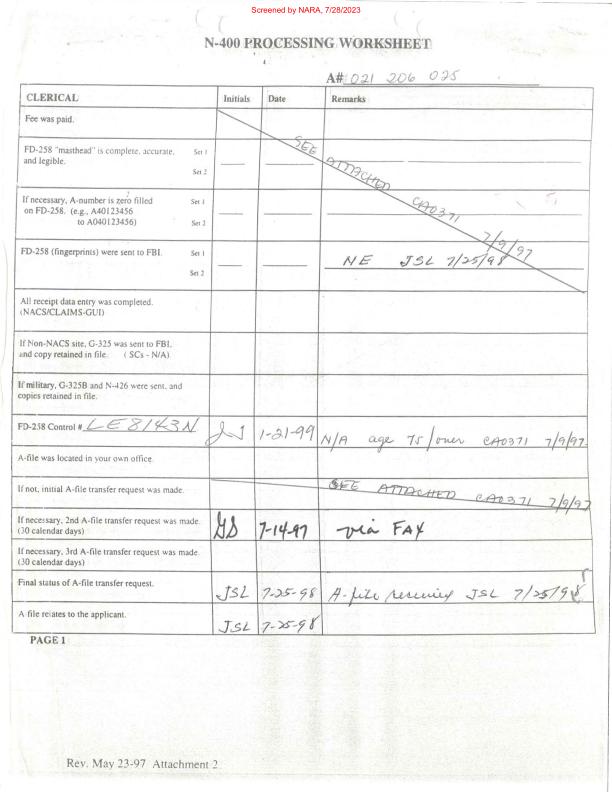 Screened by NARA, 7/28/2023
N-400 PROCESSING WORKSHEET
A# 021 206 025
CLERICAL Initials Date Remarks
Fee was paid.
SEE ATTACHED CA0371 7/9/97
FD-258 "masthead" is complete, accurate, Set 1
and legible.
Set 2
If necessary, A-number is zero filled Set 1
on FD-258. (e.g., A40123456
to A040123456) Set 2
FD-258 (fingerprints) were sent to FBI. Set 1
NE JSL 7/25/98
Set 2
All receipt data entry was completed.
(NACS/CLAIMS-GUI)
If Non-NACS site, G-325 was sent to FBI,
and copy retained in file. ( SCs - N/A)
If military, G-325B and N-426 were sent, and
copies retained in file.
FD-258 Control # LE8143N 1-21-99 N/A age 75/over CA0371 7/9/97
A-file was located in your own office.
If not, initial A-file transfer request was made. SEE ATTACHED CA0371 7/9/97
If necessary, 2nd A-file transfer request was made. GS 7-14-97 via FAX
(30 calendar days)
If necessary, 3rd A-file transfer request was made.
(30 calendar days)
Final status of A-file transfer request. JSL 7-25-98 A-file JSL 7/25/98
A file relates to the applicant. JSL 7-25-98
PAGE 1
Rev. May 23-97 Attachment 2